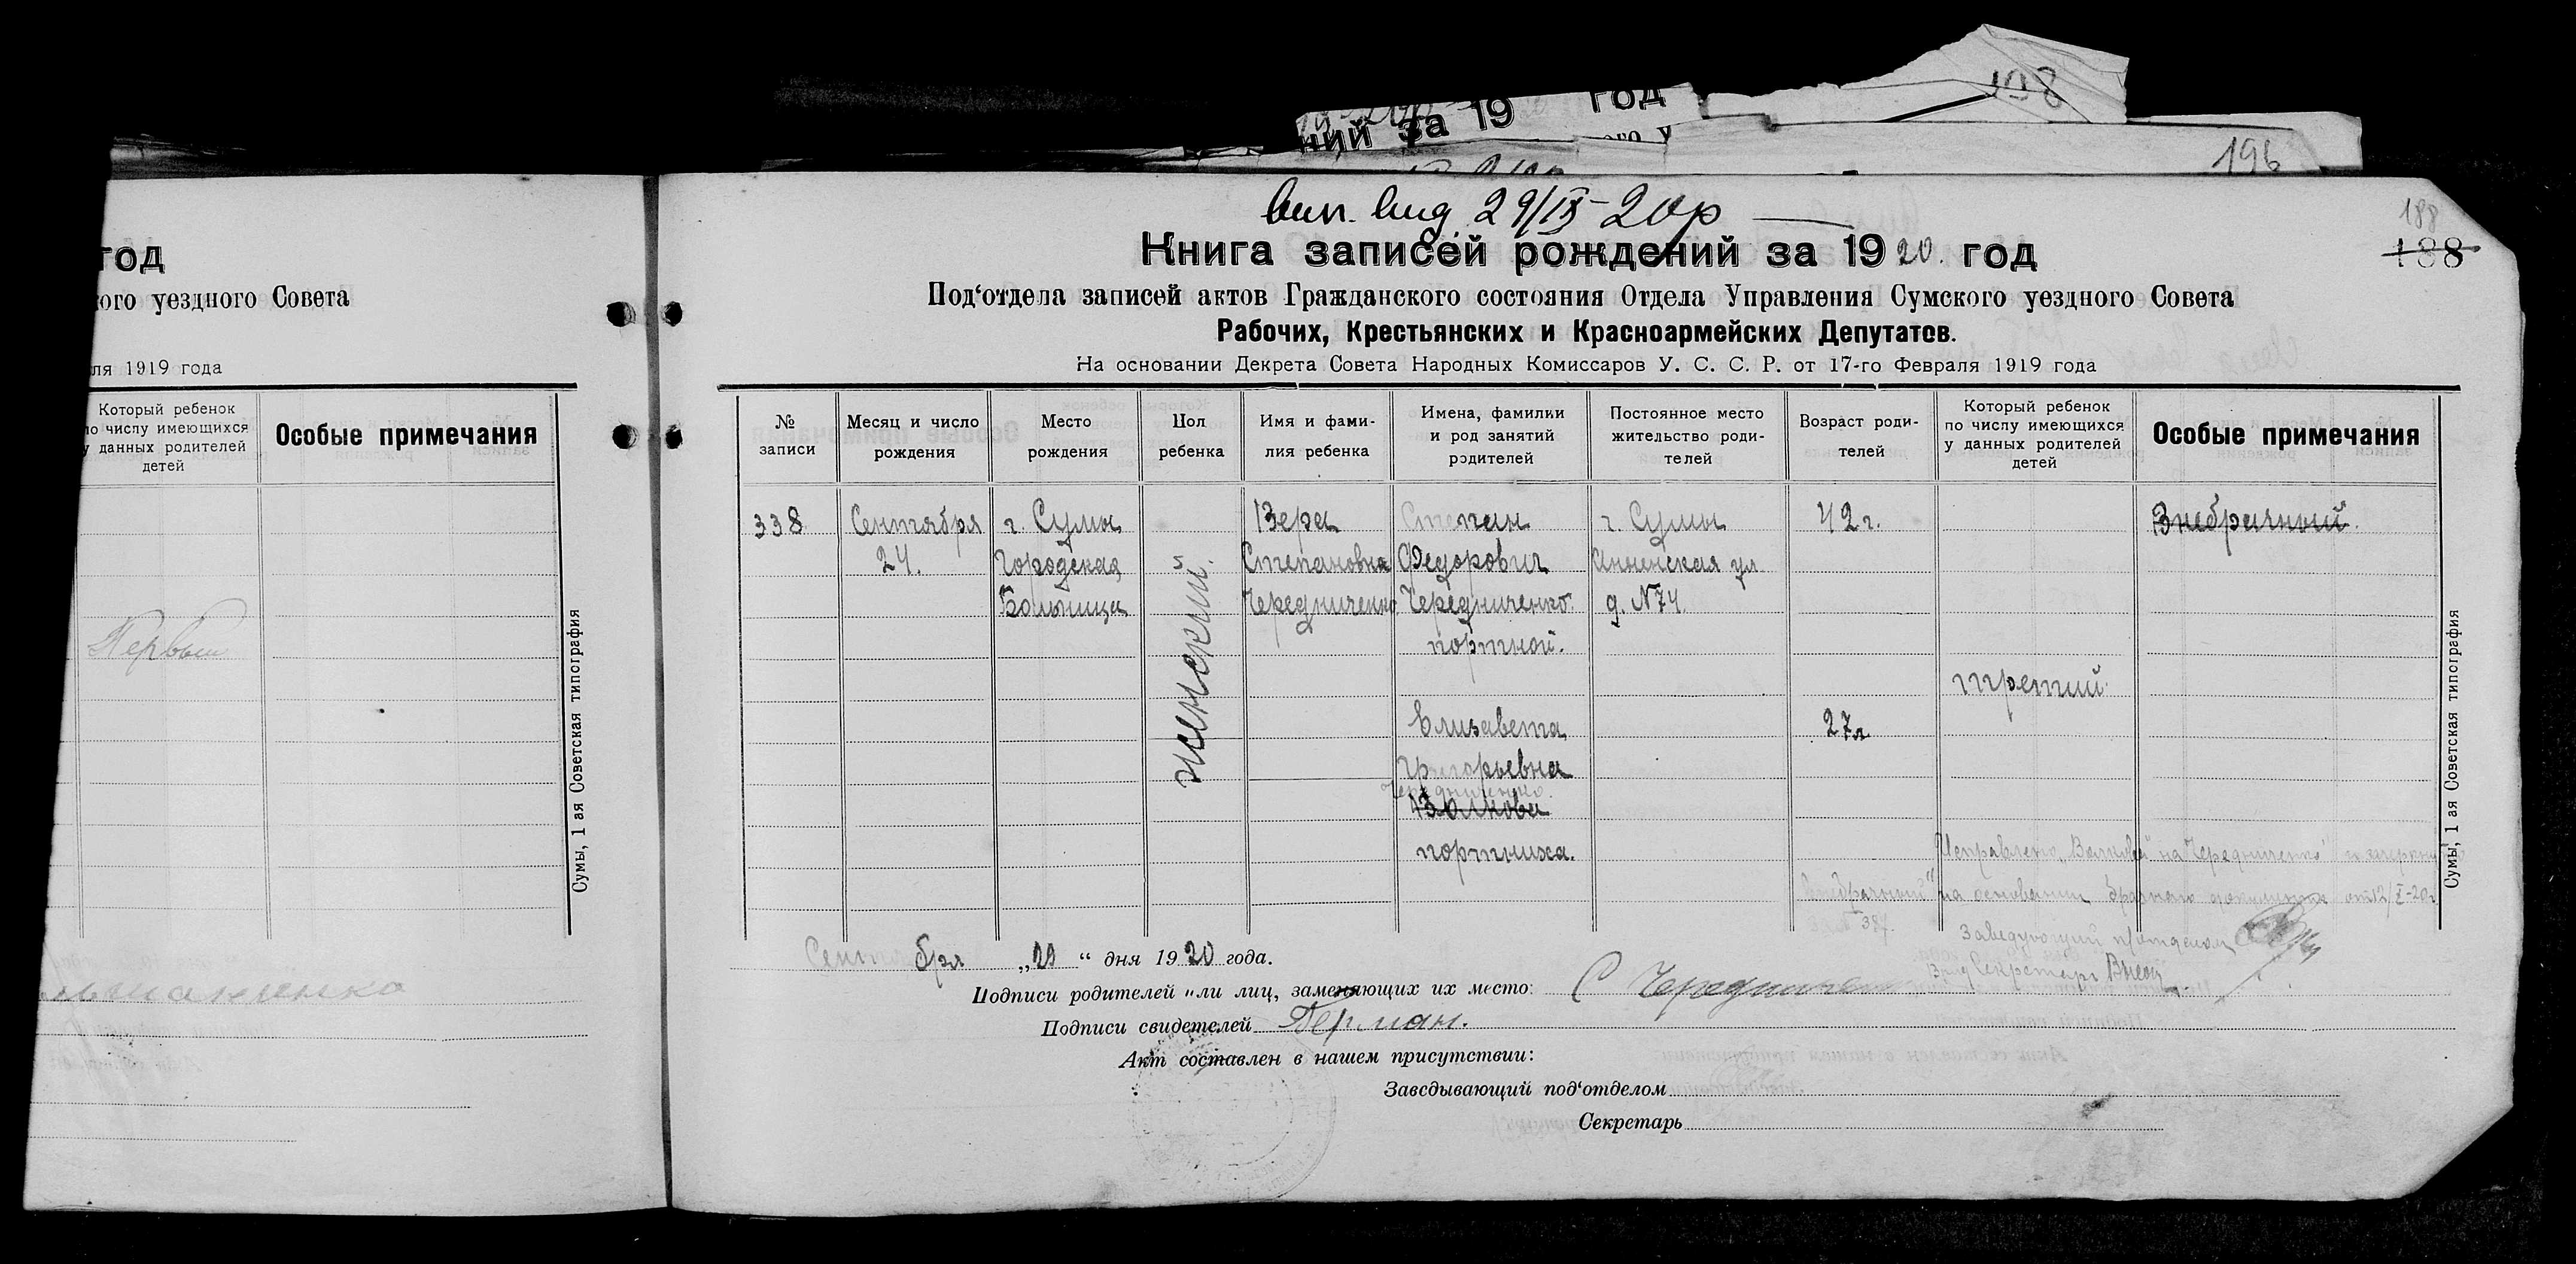 год
ний за 19
198
196
Вып. вид 29/IX-20р
188
188
год
кого уездного Совета
ля 1919 года
Который ребенок
по числу имеющихся
у данных родителей
детей
Особые примечания
Первый
Сумы, 1 ая Советская типография
Книга записей рождений за 1920. год
Под‘отдела записей актов Гражданского состояния Отдела Управления Сумского уездного Совета
Рабочих, Крестьянских и Красноармейских Депутатов.
На основании Декрета Совета Народных Комиссаров У. С. С. Р. от 17-го Февраля 1919 года
№
записи
Месяц и число
рождения
Место
рождения
Пол
ребенка
Имя и фами-
лия ребенка
Имена, фамилии
и род занятий
родителей
Постоянное место
жительство роди-
телей
Возраст роди-
телей
Который ребенок
по числу имеющихся
у данных родителей
детей
Особые примечания
338
Сентября
24.
г. Сумы
Городская
Больница
женский.
Вера
Степановна
Чередниченко
Степан
Федорович
Чередниченко.
портной.
Елизавета
Григорьевна
Чередниченко.
Волкова
портниха.
г. Сумы
д. №74.
42 г.
27 л
третий.
Внебрачный.
Исправлено "Волкова" на "Чередниченко" и зачеркнут
"внебрачный" на основании брачного документа от 12/X-20г.
387.
Заведующий п/отделом
Секретарь
Сумы, 1 ая Советская типография
Сентября „29“ дня 1920 года.
Подписи родителей или лиц, заменяющих их место: С Чередничен
Подписи свидетелей Герман.
Акт составлен в нашем присутствии:
Заведывающий под‘отделом
Секретарь